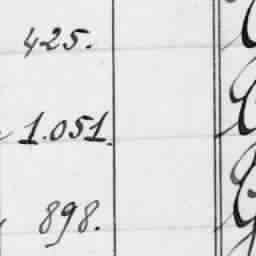 425.
1.051.
898.